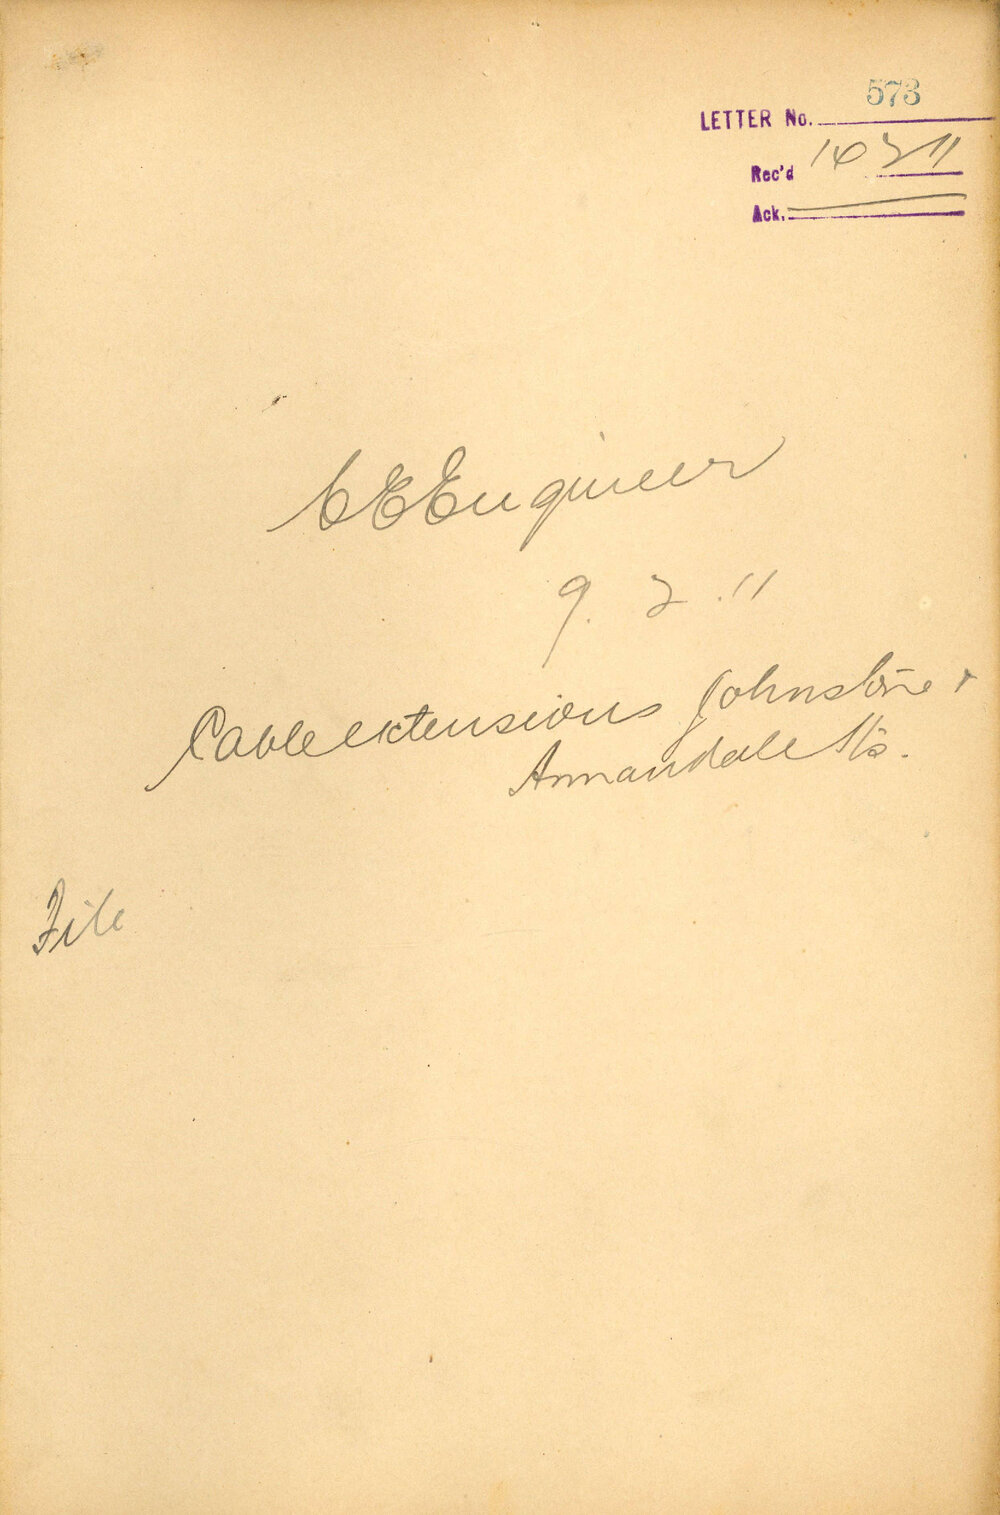 573
LETTER No.
Rec'd 14 2 11
Ack.
C E Engineer
9. 2. 11
Cable extensions Johnstone &
Annandale Sts.
File